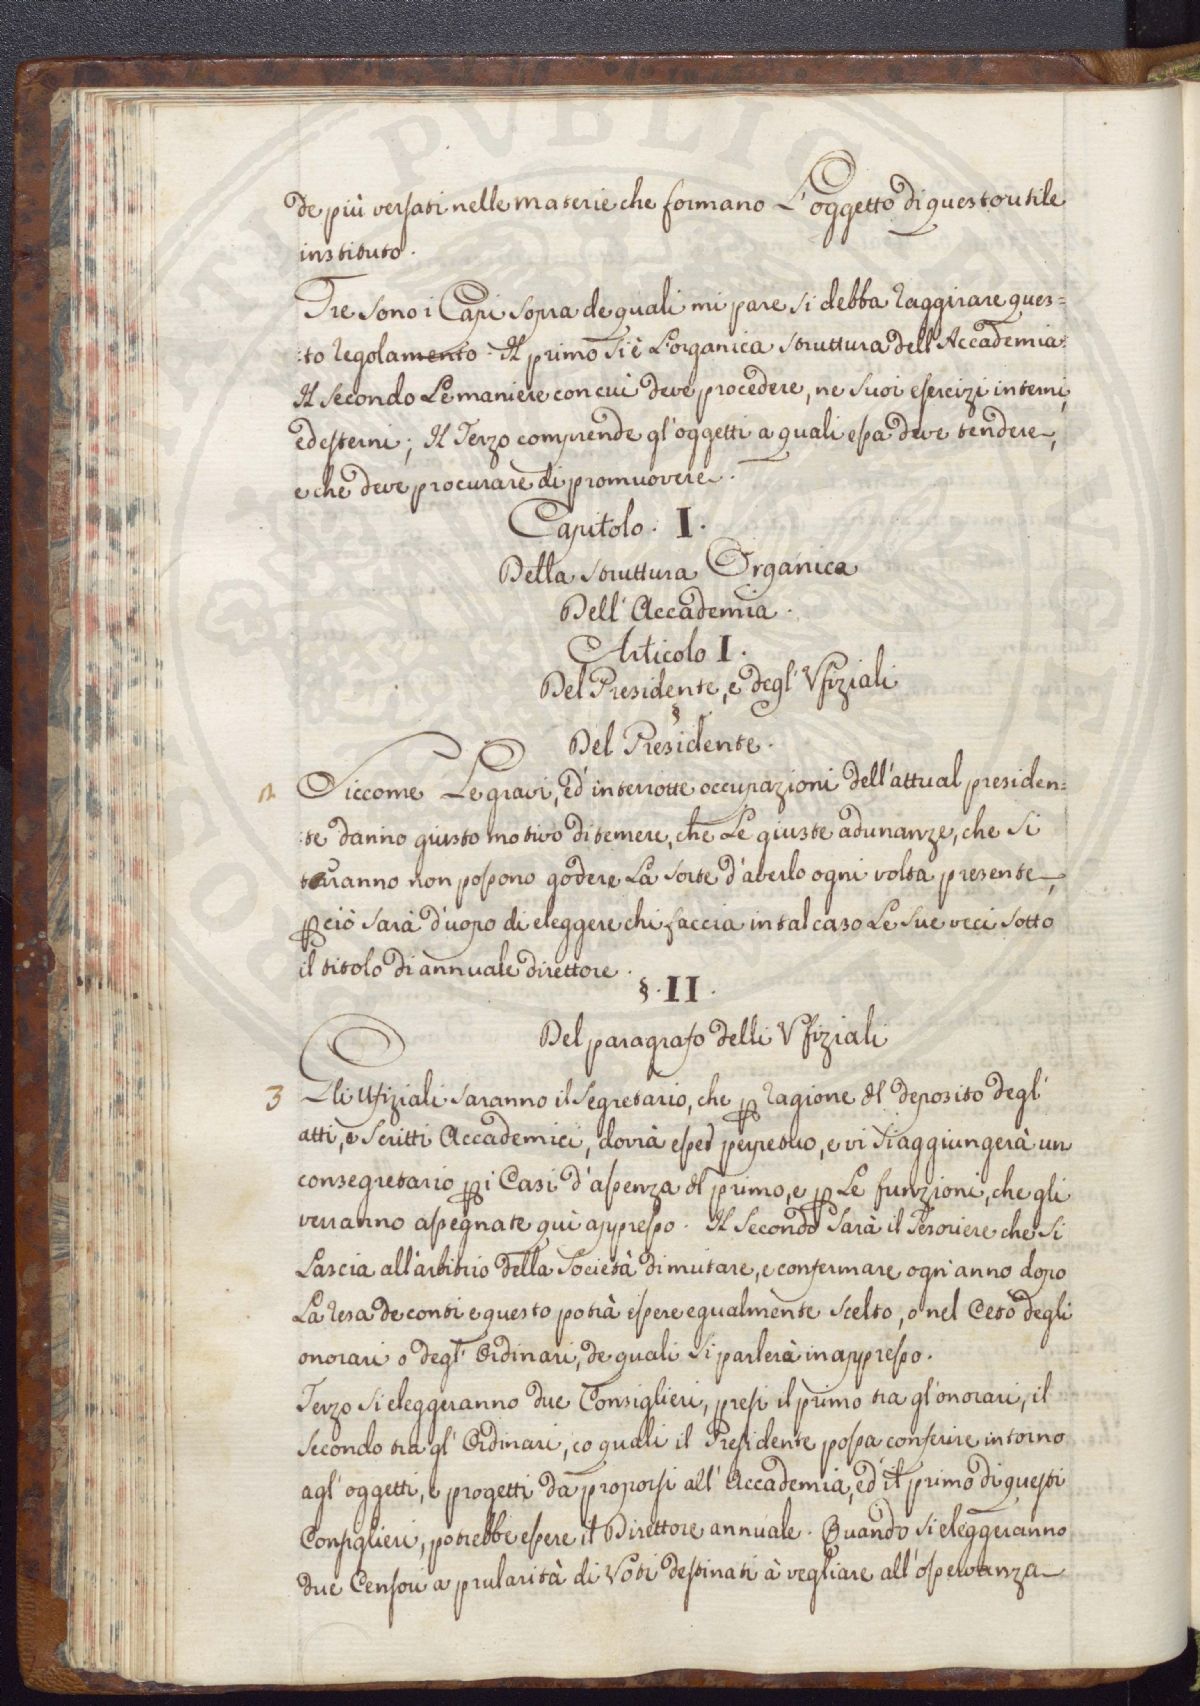 de più versati nelle materie che formano L'oggetto di questo utile
instituto.
Tre sono i Capi sopra de quali mi pare si debba raggirare ques=
:to regolamento. Il primo si è L'organica struttura dell'Accademia.
Il secondo Le maniere con cui deve procedere, ne suoi esercizi interni,
ed esterni; Il Terzo comprende gl'oggetti a quali essa deve tendere,
e che deve procurare di promuovere.
Capitolo. I.
Della struttura Organica
Dell'Accademia.
Articolo I.
Del Presidente, e degl'Vfiziali
§
Del Presidente.
2 Siccome Le gravi, ed interrotte occupazioni dell'attual presiden=
:te danno giusto motivo di temere, che Le giuste adunanze, che si
faranno non possono godere La sorte d'averlo ogni volta presente,
perciò sarà d'uopo di eleggere chi faccia in tal caso Le sue veci sotto
il titolo di annuale direttore.
§. II.
Del paragrafo delli Vfiziali
3 Gli Ufiziali saranno il segretario, che per ragione del deposito degl'
atti, e scritti Accademici, dovrà esser perpetuo, e vi si aggiungerà un
consegretario per i Casi d'assenza del primo, e per Le funzioni, che gli
verranno assegnate qui appresso. Il Secondo Sarà il Tesoriere che si
Lascia all'arbitrio della Società di mutare, e confermare ogn'anno dopo
La resa de conti e questo potrà essere egualmente scelto, o nel Ceto degli
onorari o degl'Ordinari, de quali si parlerà in appresso.
Terzo si eleggeranno due Consiglieri, presi il primo tra gl'onorari, il
secondo tra gl'Ordinari, co quali il Presidente possa conferire intorno
agl'oggetti, e progetti da proporsi all'Accademia, ed il primo di questi
Consiglieri, potrebbe essere il Direttore annuale. Quando si eleggeranno
due Censori a prularità di Voti destinati à vegliare all'osservanza